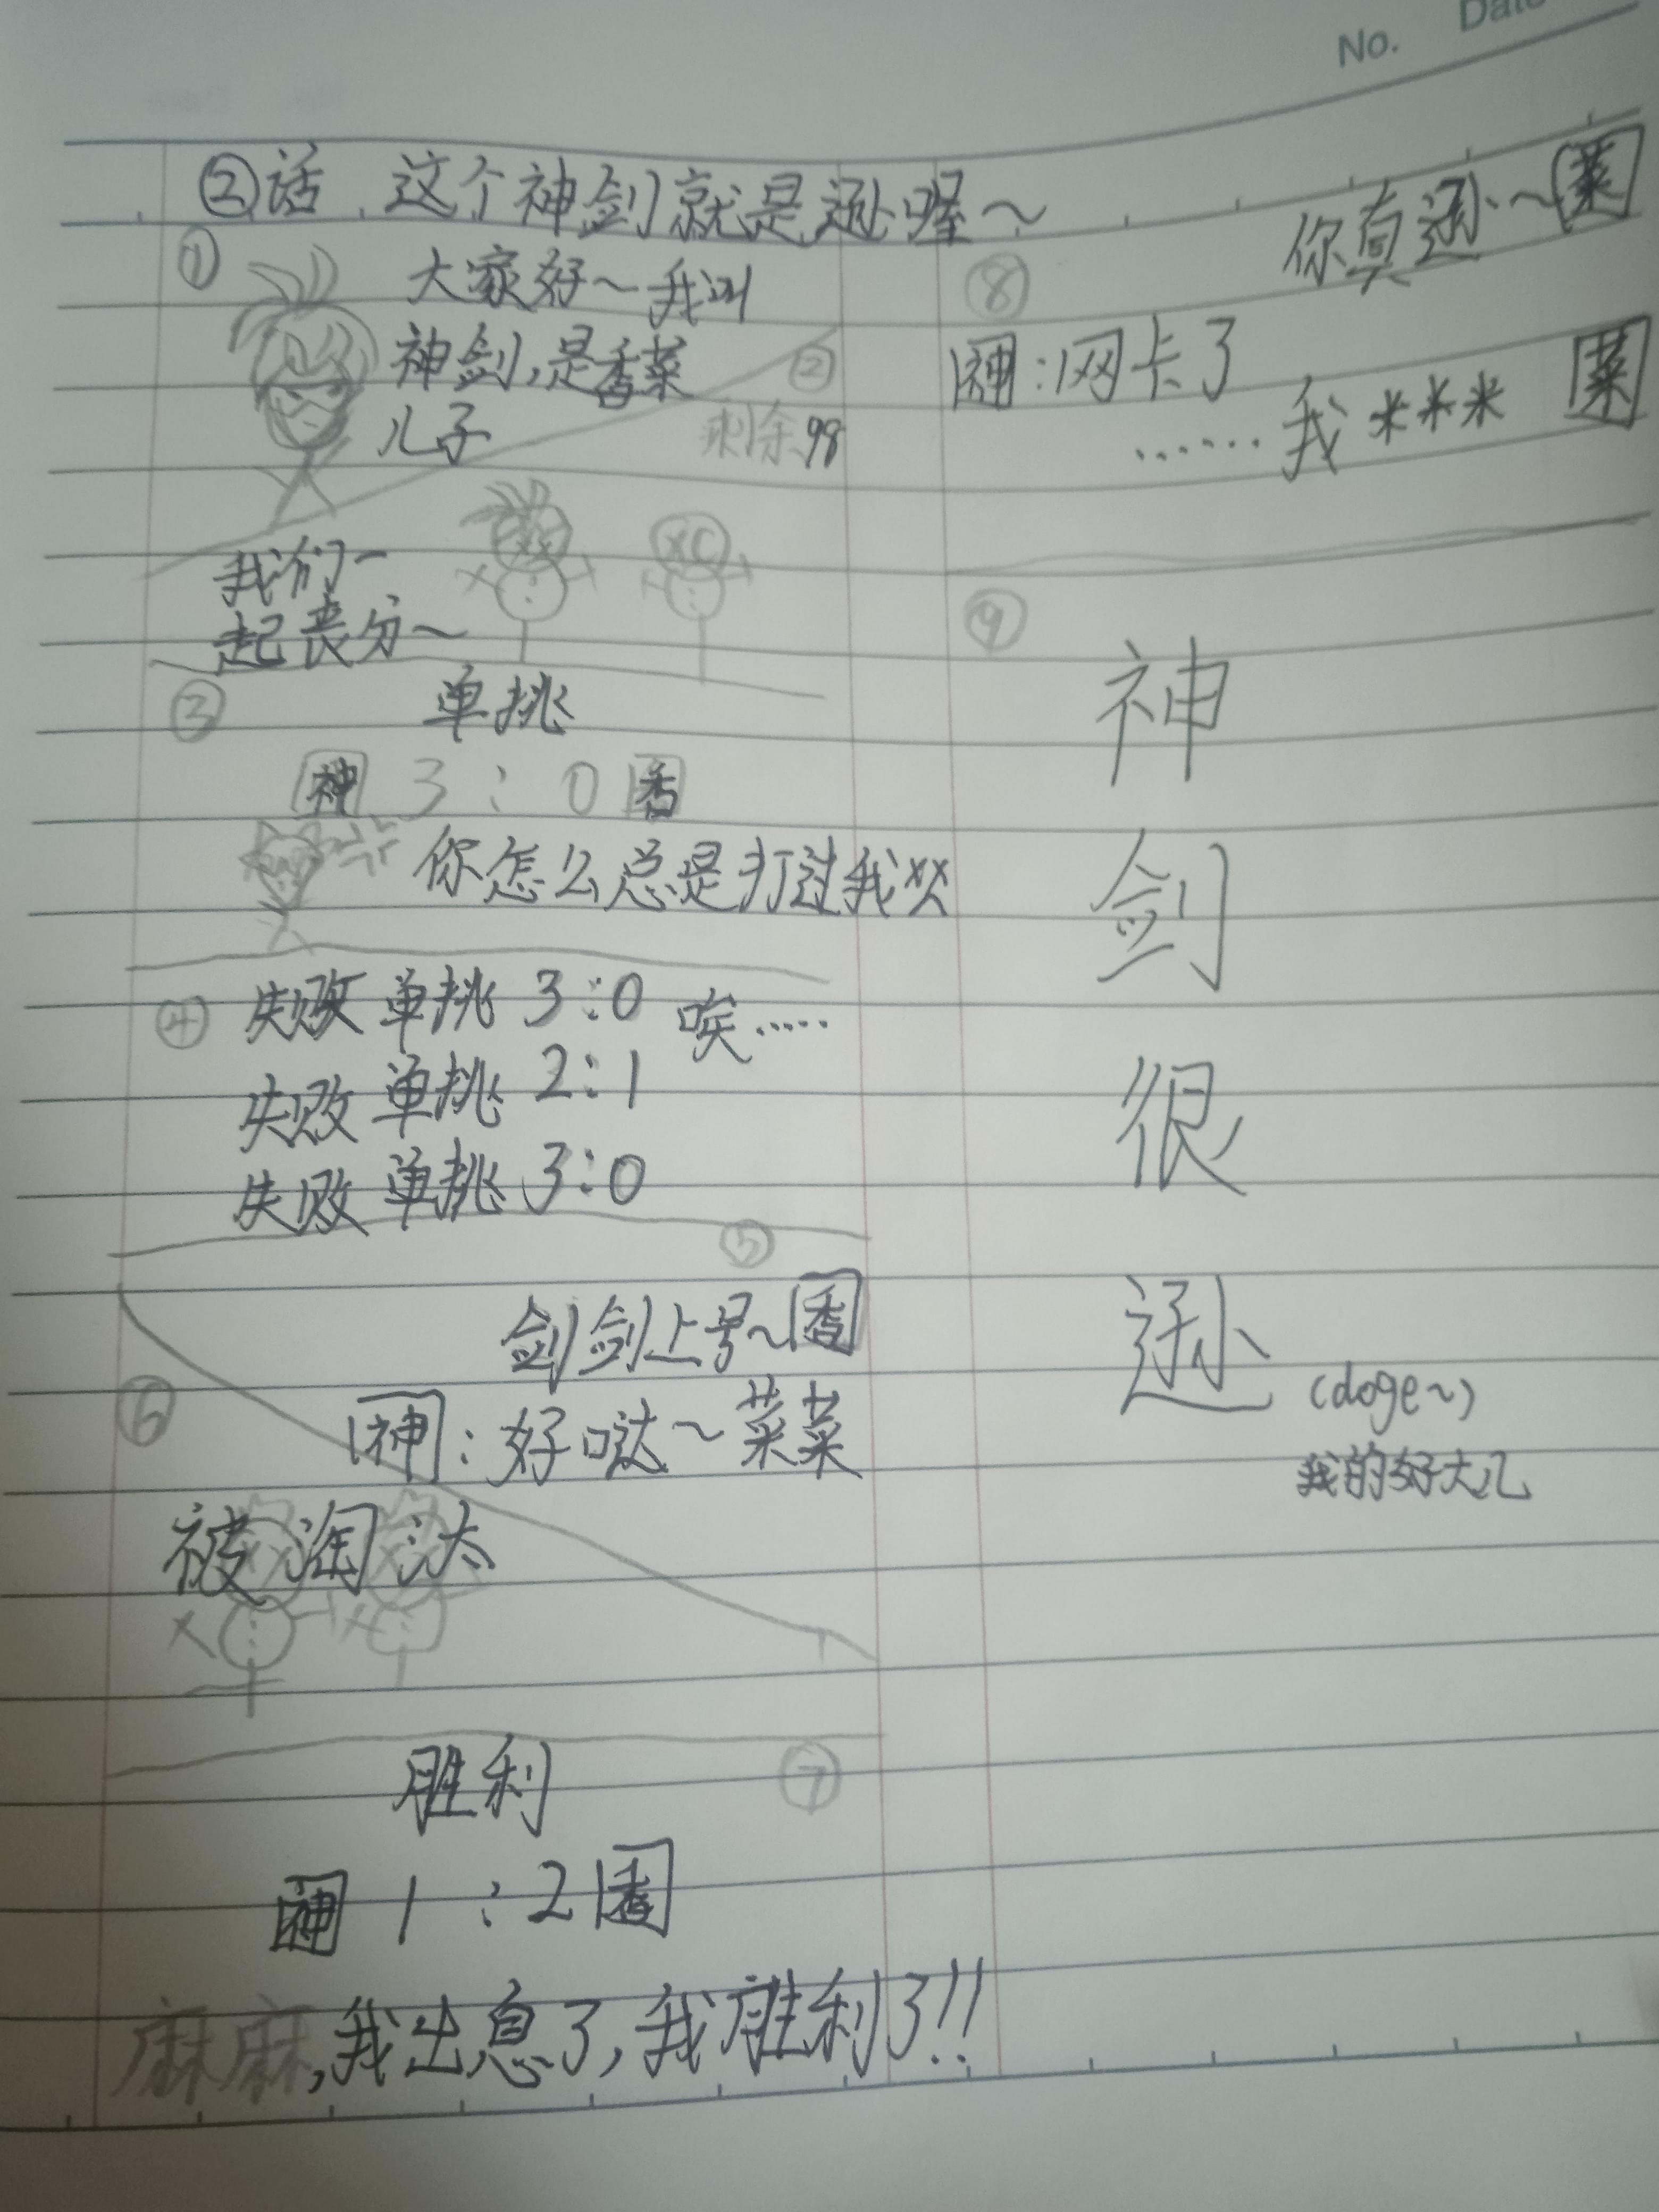 No.
Date
②话 这个神剑就是逊喔~
①
大家好~我叫
神剑,是香菜
儿子
②
剩余98
我们一
起丧分~
③
单挑
神 3 : 0 香
你怎么总是打过我
④ 失败 单挑 3:0 唉……
失败 单挑 2:1
失败 单挑 3:0
⑤
剑剑上号~香
⑥
神:好哒~菜菜
被淘汰
⑦
胜利
神 1 : 2 香
麻麻,我出息了,我胜利了!!
你真逊~菜
⑧
神:网卡了
……我*** 菜
⑨
神
剑
很
逊
(doge~)
我的好大儿